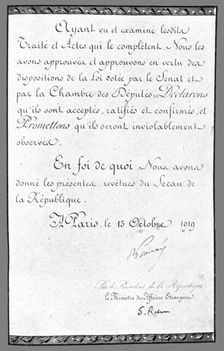 Ayant vu et examiné lesdits
Traité et Actes qui le complètent Nous les
avons approuvés et approuvons en vertu des
dispositions de la Loi votée par le Sénat et
par la Chambre des Députés, Déclarons
qu'ils sont acceptés, ratifiés et confirmés, et
Promettons qu'ils seront inviolablement
observés.
En foi de quoi Nous avons
donné les présentes, revêtues du Sceau de
la République.
A Paris, le 13 Octobre 1919
Par le Président de la République
Le Ministre des Affaires Etrangères